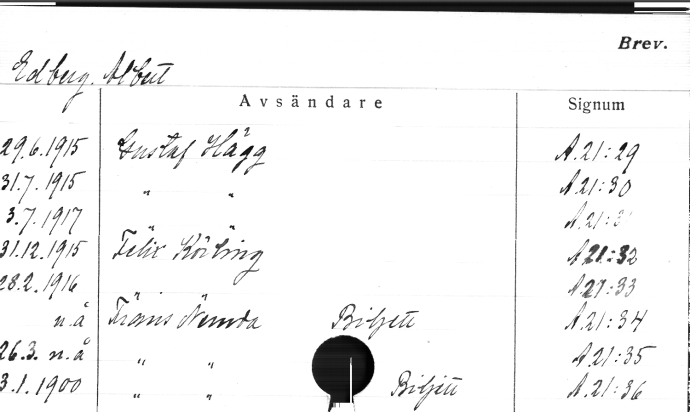 Brev.
Edberg. Albert
Avsändare Signum
29.6.1915 Gustaf Hägg A.21:29
31.7.1915 " " A.21:30
3.7.1917 A.21:3
31.12.1915 Felix Körling A.21:32
28.2.1916 A.21:33
n.å Frans Neruda Biljett A.21:34
26.3. n.å " " A.21:35
3.1.1900 " " Biljett A.21:36